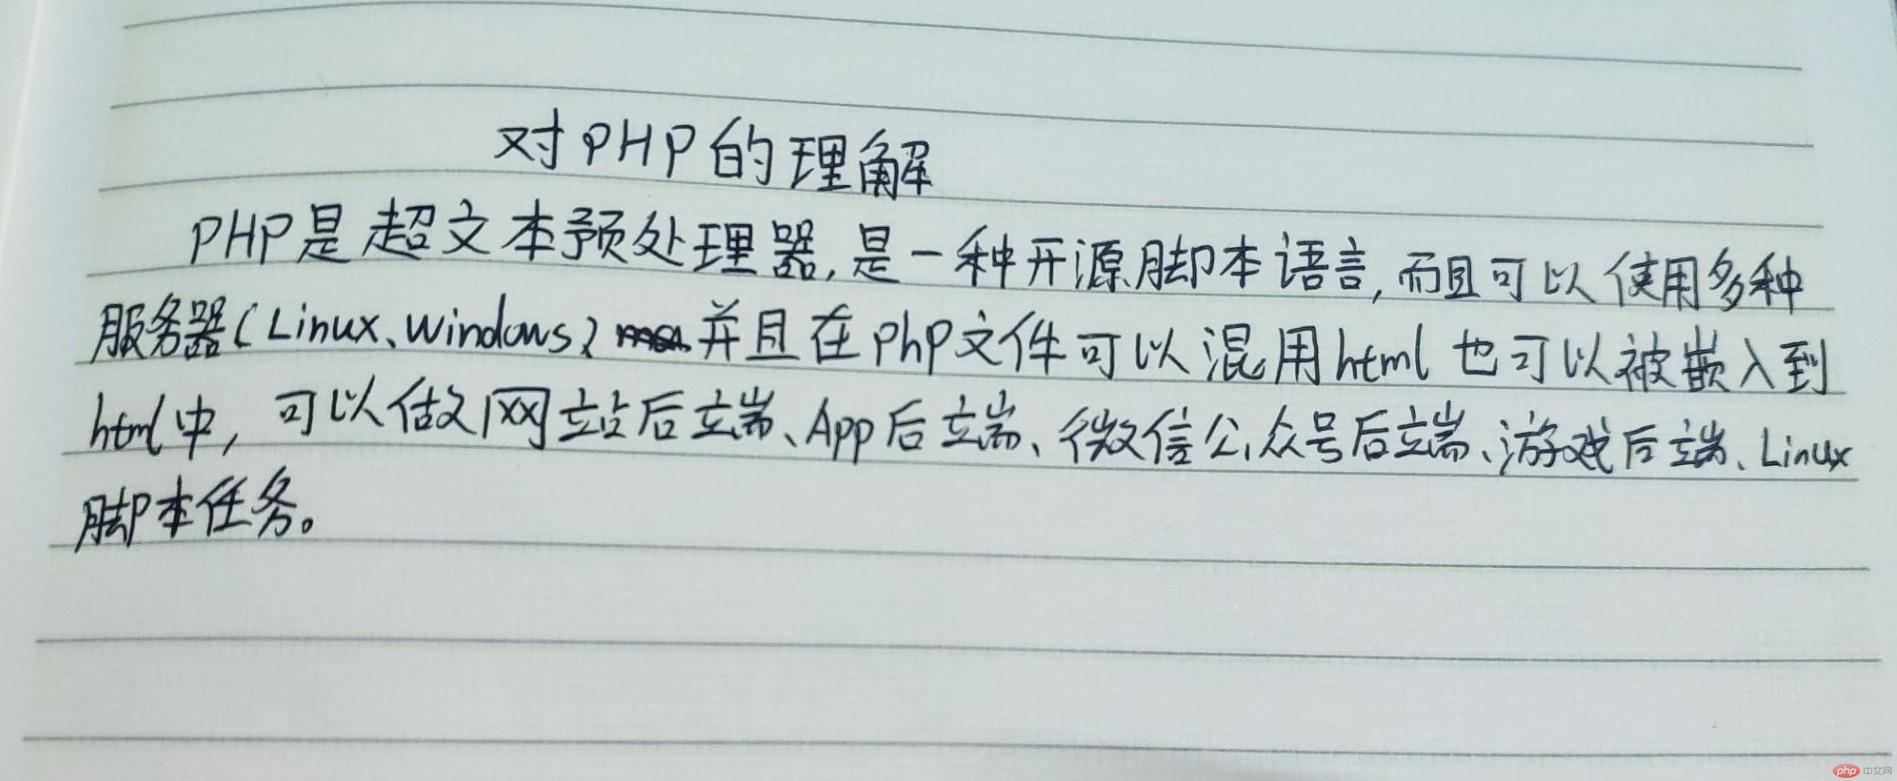 对PHP的理解
PHP是超文本预处理器,是一种开源脚本语言,而且可以使用多种
服务器(Linux、windows)并且在php文件可以混用html也可以被嵌入到
html中,可以做网站后立端、App后立端、微信公众号后立端、游戏后端、Linux
脚本任务。
php 中文网